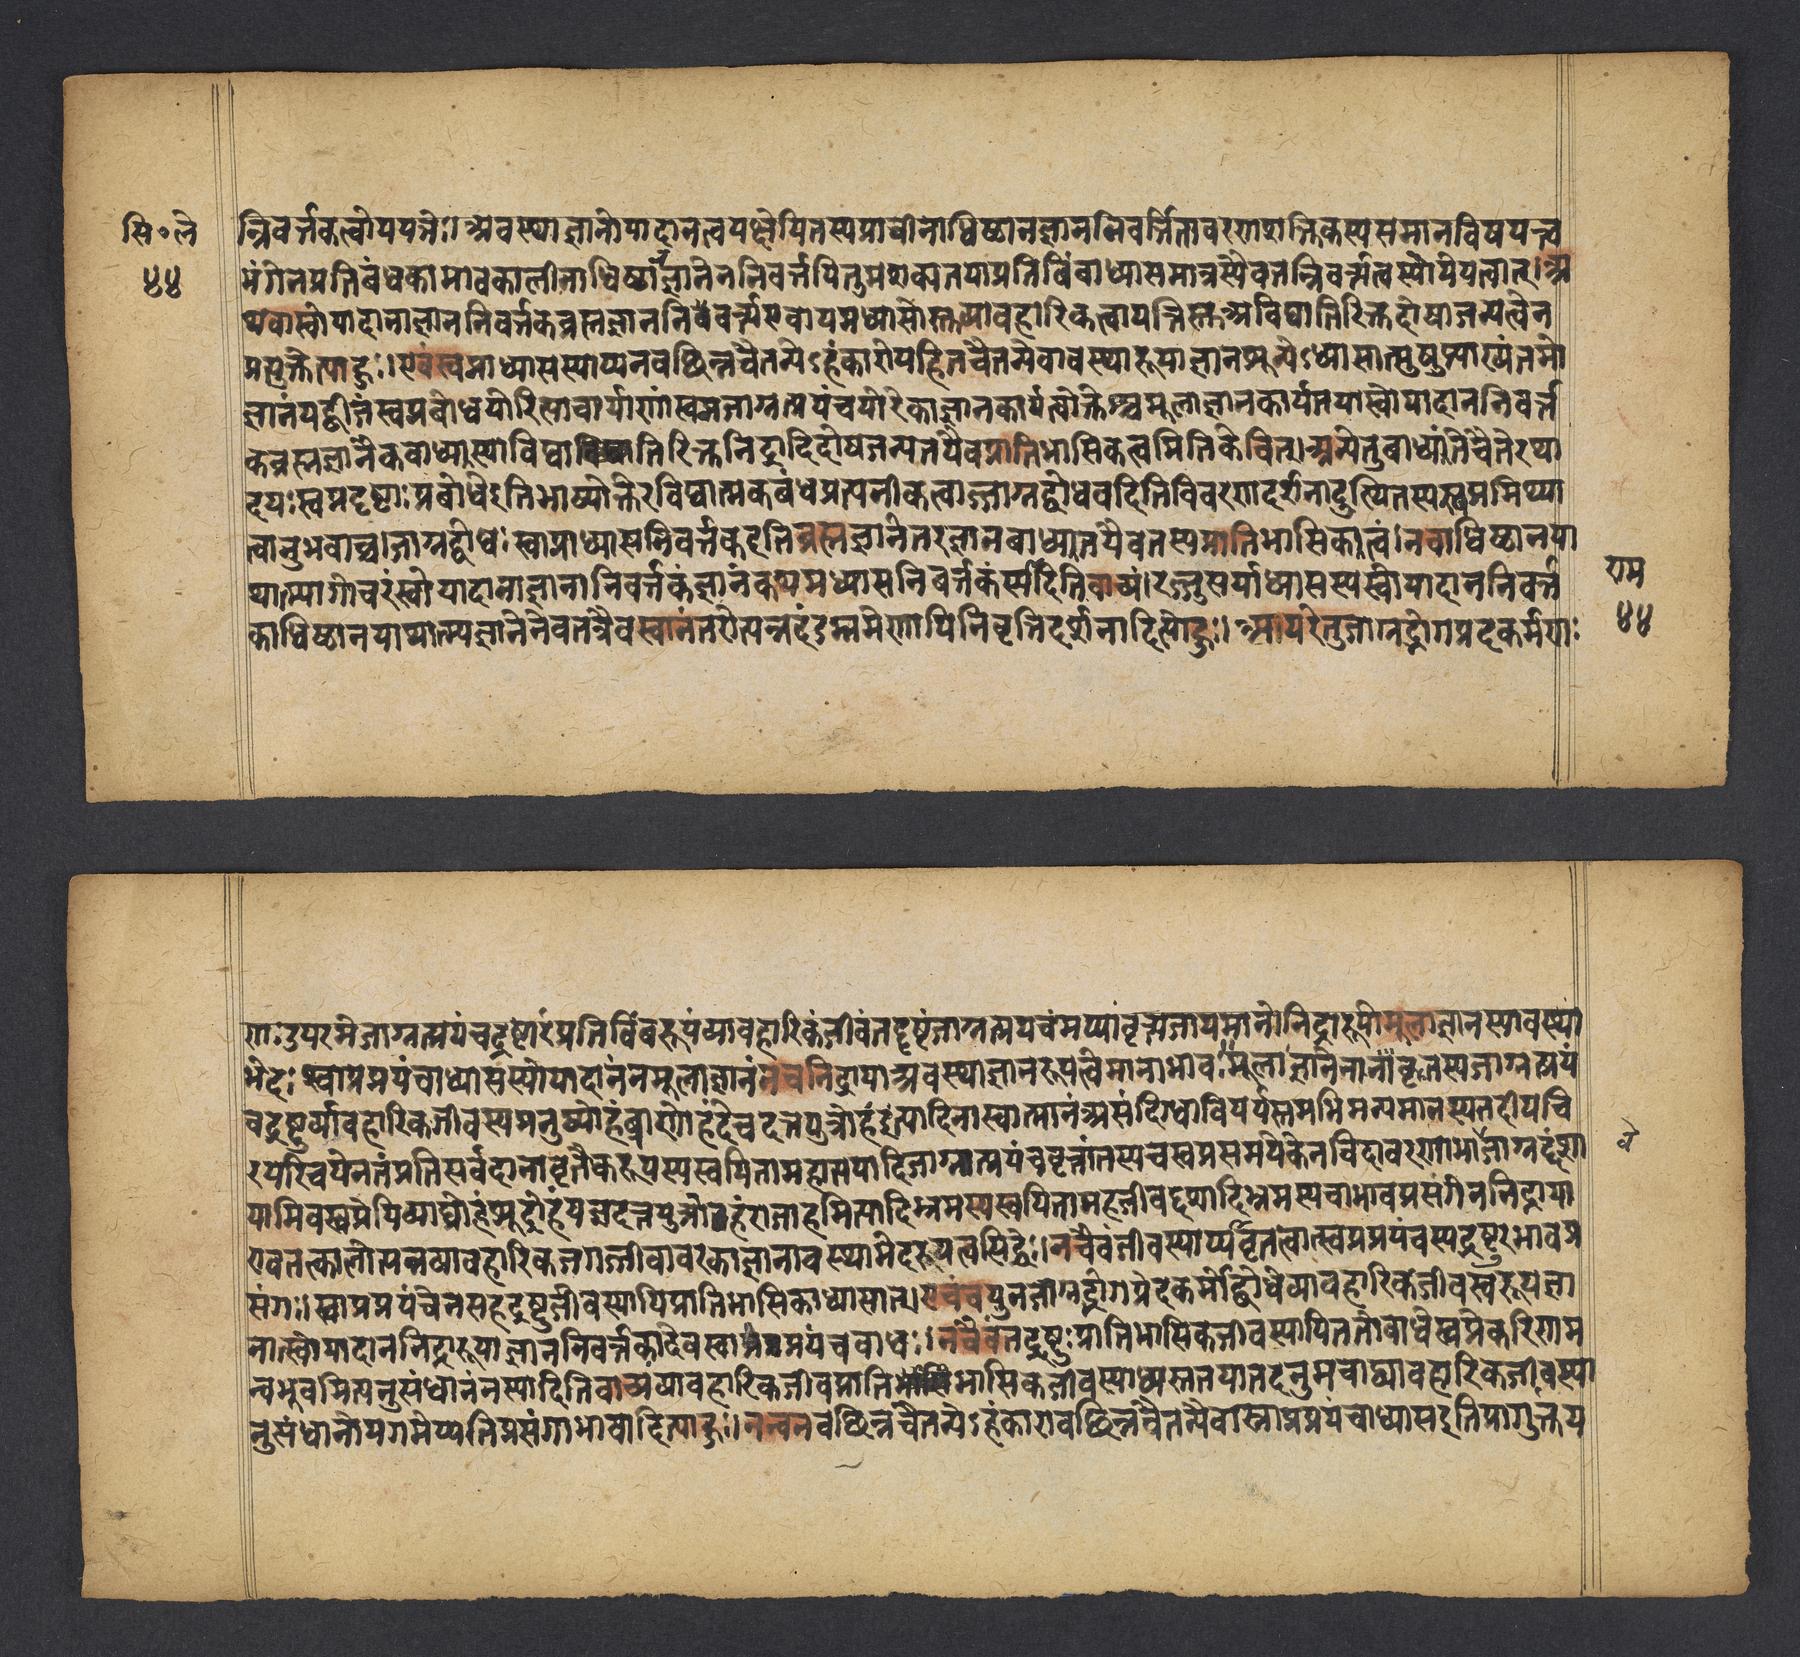 सि॰ले
४४
न्निवर्त्तकत्वोपपत्तेः। अवस्थाज्ञानोपादानत्वपक्षेपितस्यप्राचीनाधिष्ठानज्ञाननिवर्त्तितावरणशक्तिकस्यसमानविषयत्व
भंगेनप्रतिबंधकाभावकालीनाधिष्ठानज्ञानेननिवर्त्तयितुमशक्यतयाप्रतिबिंबाध्यासमात्रस्यैवतन्निवर्त्यत्वस्योपेयत्वात्। अ
थवास्वोपादानाज्ञाननिवर्तकब्रह्मज्ञाननिवर्त्यएवायमध्यासोस्तुव्यावहारिकत्वापत्तिस्तुअविद्यातिरिक्तदोषाजन्यत्वेन
प्रत्युक्तेत्याहुः। एवंस्वप्नाध्यासस्याप्यनवच्छिन्नचैतन्येऽहंकारोपहितचैतन्येवावस्थारूपाज्ञानशून्येऽध्यासात्सुषुप्त्याख्यंतमो
ज्ञानंयद्बीजंस्वप्नप्रबोधयोरित्याचार्याणांस्वप्नजाग्रत्प्रपंचयोरेकाज्ञानकार्यत्वोक्तेश्चमूलाज्ञानकार्यतयास्वोपादाननिवर्त्त
कब्रह्मज्ञानैकबाध्यस्याविद्यातिरिक्तनिद्रादिदोषजन्यतयैवप्रातिभासिकत्वमितिकेचित्। अन्येतुबाध्यंतेचैतेरथा
दयःस्वप्नदृष्टाः प्रबोधेइतिभाष्योक्तेरविद्यात्मकबंधप्रत्यनीकत्वाज्जाग्रद्बोधवदितिविवरणदर्शनादुत्थितस्यस्वप्नमिथ्या
त्वानुभवाच्च। जाग्रद्बोधः स्वाप्नाध्यासनिवर्त्तकइतिब्रह्मज्ञानेतरज्ञानबाध्यतयैवतस्यप्रातिभासिकत्वं। नचाधिष्ठानया
थात्म्यागोचरंस्वोपादानाज्ञानानिवर्त्तकंज्ञानंकथमध्यासनिवर्त्तकंस्यादितिवाच्यं। रज्जुसर्पाध्यासस्यस्वोपादाननिवर्त्त
काधिष्ठानयाथात्म्यज्ञानेनेवतत्रैवस्वानंतरोत्पन्नदंडभ्रमेणापिनिवृत्तिदर्शनादित्याहुः। अपरेतुजाग्रद्भोगप्रदकर्मणाः
राम
४४
णाःउपरमेजाग्रत्प्रपंचद्रष्टारंप्रतिबिंबरूपंव्यावहारिकंजीवंतदृष्टंजाग्रत्प्रपंचंमप्यावृत्यजायमानोनिद्रारूपोमूलाज्ञानस्यावस्था
भेदः स्वाप्नप्रपंचाध्यासस्योपादानंनमूलाज्ञानंनचनिद्रायाअवस्थाज्ञानरूपत्वेमानाभावः मूलाज्ञानेनानावृतस्यजाग्रत्प्रपं
चद्रष्टुर्व्यावहारिकजीवस्यमनुष्योहंब्राह्मणोहंदेवदत्तपुत्रोहंइत्यादिनास्वात्मानंअसंदिग्धाविपर्यस्तमभिमन्यमानस्यतदीयचि
वे
रपरिचयेनतंप्रतिसर्वदानावृतैकरूपस्यस्वपितामहात्ययादिजाग्रत्प्रपंचवृत्तांतस्यचस्वप्नसमयेकेनचिदावरणाभावेजाग्रद्दशा
यामिवस्वप्नेपिव्याघ्रोहंशूद्रोहंयज्ञदत्तपुत्रोहंराजाहमित्यादिभ्रमस्यस्वपितामहजीवद्दशादिभ्रमस्यचाभावप्रसंगेननिद्राया
एवतत्कालोत्पन्नव्यावहारिकजगज्जीवावरकाज्ञानावस्थाभेदरूपत्वसिद्धेः। नचैवंजीवस्याप्यावृतत्वात्स्वप्नप्रपंचस्यद्रष्टुरभावप्र
संगः। स्वाप्नप्रपंचेनसहद्रष्टुर्जीवस्यापिप्रातिभासिकाध्यासात्। एवंचपुनर्जाग्रद्भोगप्रदकर्मोद्बोधेव्यावहारिकजीवस्वरूपज्ञा
नात्स्वोपादाननिद्रारूपाज्ञाननिवर्त्तकादेवस्वाप्नप्रपंचबाधः। नचैवंतद्द्रष्टुः प्रातिभासिकजीवस्यापिततोबाधेस्वप्नेकरिणम
न्वभूवमित्यनुसंधानंनस्यादितिवाच्यंव्यावहारिकजीवप्रातिभासिकजीवस्याध्यस्ततयातदनुभवाद्व्यावहारिकजीवस्या
नुसंधानोपगमेप्यतिप्रसंगाभावादित्याहुः। नन्वनवच्छिन्नचैतन्येऽहंकारावच्छिन्नचैतन्येवास्वाप्नप्रपंचाध्यासइतिप्रागुक्तप